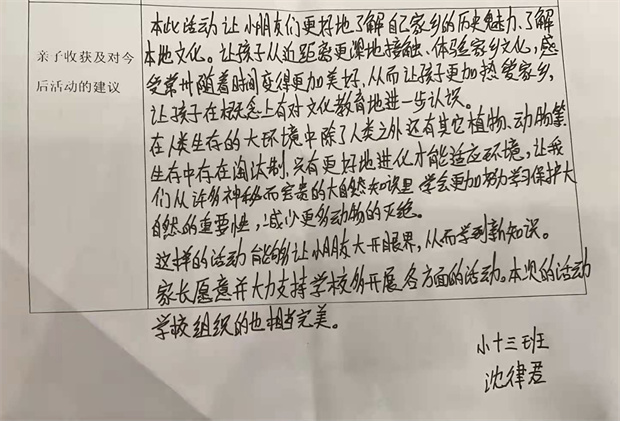 亲子收获及对今
后活动的建议
本此活动让小朋友们更好地了解自己家乡的历史魅力、了解
本地文化。让孩子从近距离更深地接触、体验家乡文化,感
受常州随着时间变得更加美好,从而让孩子更加热爱家乡,
让孩子在概念上有对文化教育地进一步认识。
在人类生存的大环境中除了人类之外还有其它植物、动物等
生存中存在淘汰制,只有更好地进化才能适应环境,让我
们从许多神秘而宝贵的大自然知识里学会更加努力学习保护大
自然的重要性,减少更多动物的灭绝。
这样的活动能够让小朋友大开眼界,从而学到新知识。
家长愿意并大力支持学校多开展各方面的活动。本次的活动
学校组织的也相当完美。
小十三班
沈律君